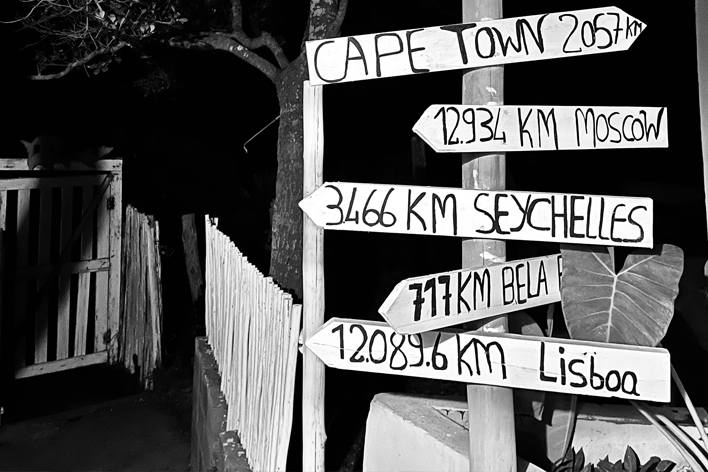 CAPE TOWN 2057KM
12.934 KM MOSCOW
3.466 KM SEYCHELLES
717 KM BELA
12.089.6 KM Lisboa